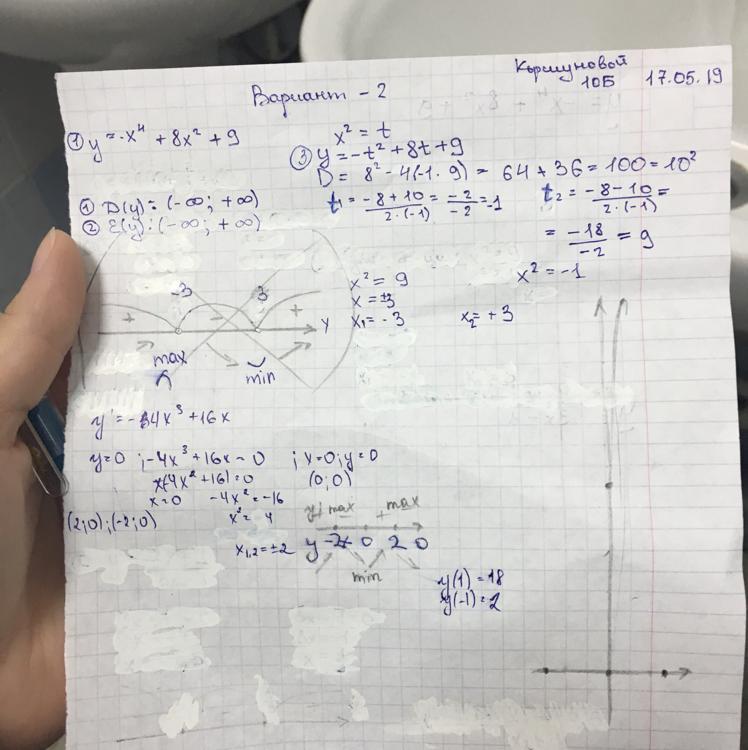 Коршуновой
10Б 17.05.19
Вариант - 2
① y = -x⁴ + 8x² + 9
x² = t
③ y = -t² + 8t + 9
D = 8² - 4(-1 · 9) = 64 + 36 = 100 = 10²
t₁ = (-8 + 10)/(2·(-1)) = -2/-2 = -1
t₂ = (-8 - 10)/(2·(-1)) =
= -18/-2 = 9
① D(y): (-∞; +∞)
② E(y): (-∞; +∞)
x² = 9
x² = -1
x = ±3
x₁ = -3
x₂ = +3
-3 3
+ - + x
max
min
y' = -4x³ + 16x
y=0 ; -4x³ + 16x = 0 ; x=0; y=0
x(-4x² + 16) = 0 (0;0)
x=0 -4x² = -16
(2;0); (-2;0) x² = 4
x₁,₂ = ±2
y' max + max
y -2 0 2 0
min
y(1) = 18
y(-1) = 2